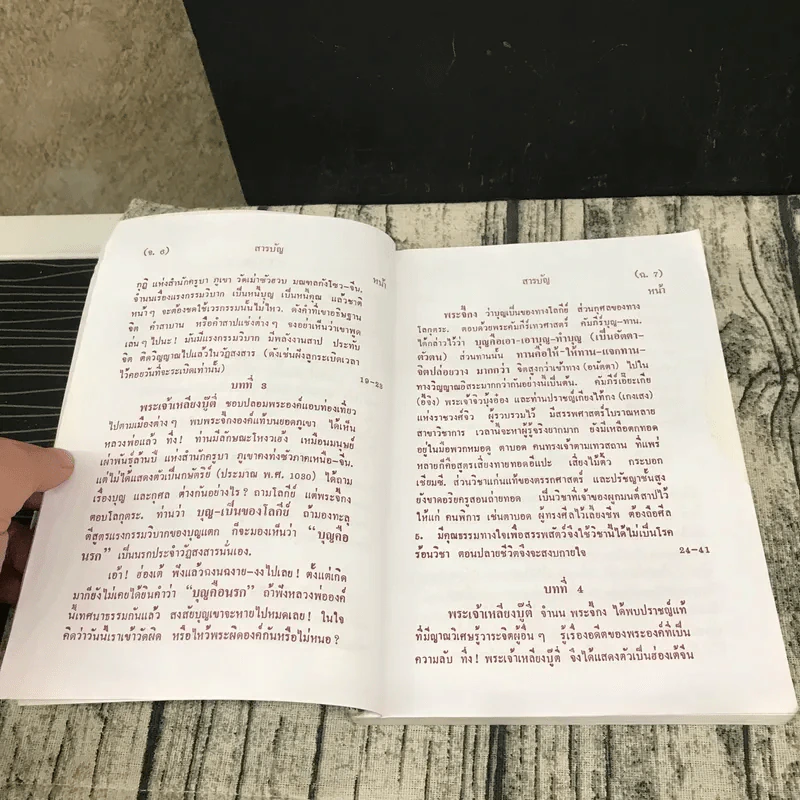 (จ. ๖) สารบัญ
หน้า
กุฏิ แห่งสำนักครูบา ภูเขา วัดเม่าซัวฮวบ มณฑลกังไซว-จีน.
จำนนเรื่องแรงกรรมวิบาก เป็นหนี้บุญ เป็นหนี้คุณ แล้วชาติ
หน้าๆ จะต้องชดใช้เวรกรรมนั้นไม่ไหว. ดังคำที่เขาอธิษฐาน
จิต คำสาบาน หรือคำสาปแช่งต่างๆ จงอย่าเห็นว่าเขาพูด
เล่นๆ ไปนะ! มันมีแรงกรรมวิบาก มีพลังงานสาป ประทับ
จิต ติดวิญญาณไปแล้วในวัฏสงสาร (ดังเช่นฝังลูกระเบิดเวลา
ไว้คอยวันที่จะระเบิดเท่านั้น) 19-23
บทที่ 3
พระเจ้าเหลียงบู๊ตี่ ชอบปลอมพระองค์แอบท่องเที่ยว
ไปตามเมืองต่างๆ พบพระจี้กงองค์แท้บนยอดภูเขา ได้เห็น
หลวงพ่อแล้ว ทึ่ง! ท่านมีลักษณะโหงวเฮ้ง เหมือนมนุษย์
เผ่าพันธุ์ล้านปี แห่งสำนักครูบา ภูเขาคงทั่งซัวภาคเหนือ-จีน.
แต่ไม่ได้แสดงตัวเป็นกษัตริย์ (ประมาณ พ.ศ. 1080) ได้ถาม
เรื่องบุญ และกุศล ต่างกันอย่างไร? ถามโลกีย์ แต่พระจี้กง
ตอบโลกุตระ. ท่านว่า บุญ-เป็นของโลกีย์ ถ้ามองทะลุ
สูตรแรงกรรมวิบากของบุญแตก ก็จะมองเห็นว่า "บุญคือ
นรก" เป็นนรกประจำวัฏสงสารนั่นเอง.
เอ้า! ฮ่องเต้ ฟังแล้วฉงนฉงาย-งงไปเลย! ตั้งแต่เกิด
มาก็ยังไม่เคยได้ยินคำว่า "บุญคือนรก" ถ้าฟังหลวงพ่อองค์
นี้เทศนาธรรมกันแล้ว สงสัยบุญเขาจะหายไปหมดเลย! ในใจ
คิดว่าวันนี้เราเข้าวัดผิด หรือไหว้พระผิดองค์กันหรือไม่หนอ?
สารบัญ (ฉ. 7)
หน้า
พระจี้กง ว่าบุญเป็นของทางโลกีย์ ส่วนกุศลของทาง
โลกุตระ. ตอบด้วยพระคัมภีร์เทวศาสตร์ คัมภีร์บุญ-ทาน.
ได้กล่าวไว้ว่า บุญคือเอา-เอาบุญ-ทำบุญ (เป็นอัตตา-
ตัวตน) ส่วนทานนั้น ทานคือให้-ให้ทาน-แจกทาน-
จิตปล่อยวาง มากกว่า จิตสูงกว่าเข้าทาง (อนัตตา) ไปใน
ทางวิญญาณอิสระมากกว่ากันอย่างนี้เป็นต้น. คัมภีร์เอี๊ยะเกีย
(อี้จิง) พระเจ้าจิวบุ๋งอ๋อง และท่านปราชญ์เกียงไท้กง (เกงเสง)
แห่งราชวงศ์จิว ผู้รวบรวมไว้ มีสรรพศาสตร์โบราณหลาย
สาขาวิชาการ เวลานี้จะหาผู้รู้จริงยากมาก ยังมีเหลือตกทอด
อยู่ในมือพวกหมอดู ตาบอด คนทรงเจ้าตามเทวสถาน ที่แพร่
หลายก็คือสูตรเสี่ยงทายทอดยี่แปะ เสี่ยงไม้ติ้ว กระบอก
เซียมซี. ส่วนวิชาแก่นแท้ของตรรกศาสตร์ และปรัชญาชั้นสูง
ยังขาดอริยครูสอนถ่ายทอด เป็นวิชาที่เจ้าของผูกมนต์สาปไว้
ให้แก่ คนพิการ เช่นตาบอด ผู้ทรงศีลไว้เลี้ยงชีพ ต้องถือศีล
๕. มีคุณธรรมทางใจเพื่อสรรพสัตว์จึงใช้วิชานี้ได้ไม่เป็นโรค
ร้อนวิชา ตอนปลายชีวิตจึงจะสงบกายใจ 24-41
บทที่ 4
พระเจ้าเหลียงบู๊ตี่ จำนน พระจี้กง ได้พบปราชญ์แท้
ที่มีญาณวิเศษรู้วาระจิตผู้อื่นๆ รู้เรื่องอดีตของพระองค์ที่เป็น
ความลับ ทึ่ง! พระเจ้าเหลียงบู๊ตี่ จึงได้แสดงตัวเป็นฮ่องเต้จีน